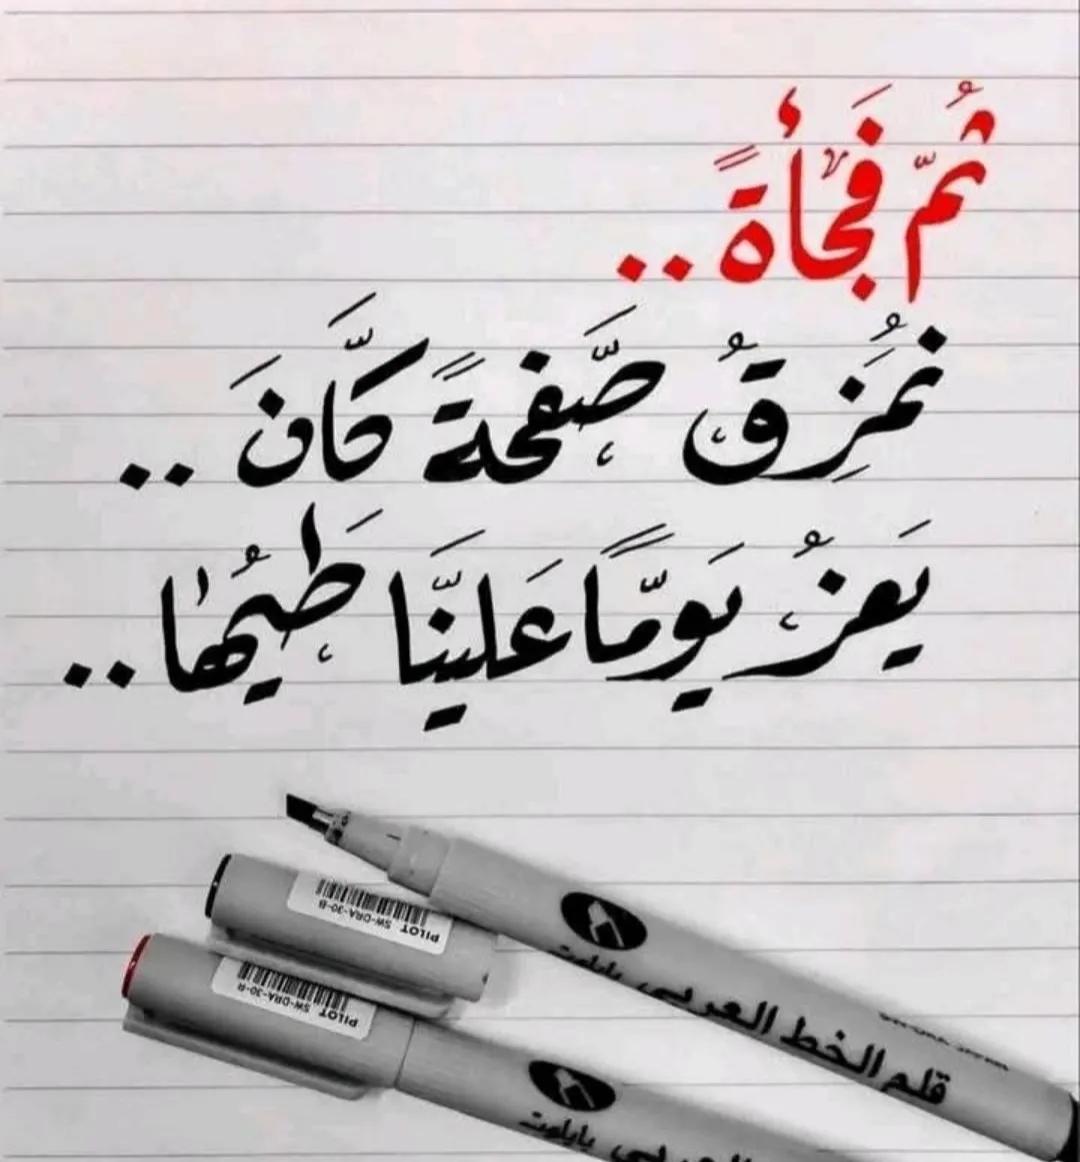 ثُمّ فَجْأَةً ..
نُمَزِقُ صَّفحةً كَّانَ ..
يَعزُ يَومًّا عَلينَّا طَيُها ..
PILOT SW-DRA-30-B
PILOT SW-DRA-30-R
قلم الخط العربي بايلوت
العربي بايلوت